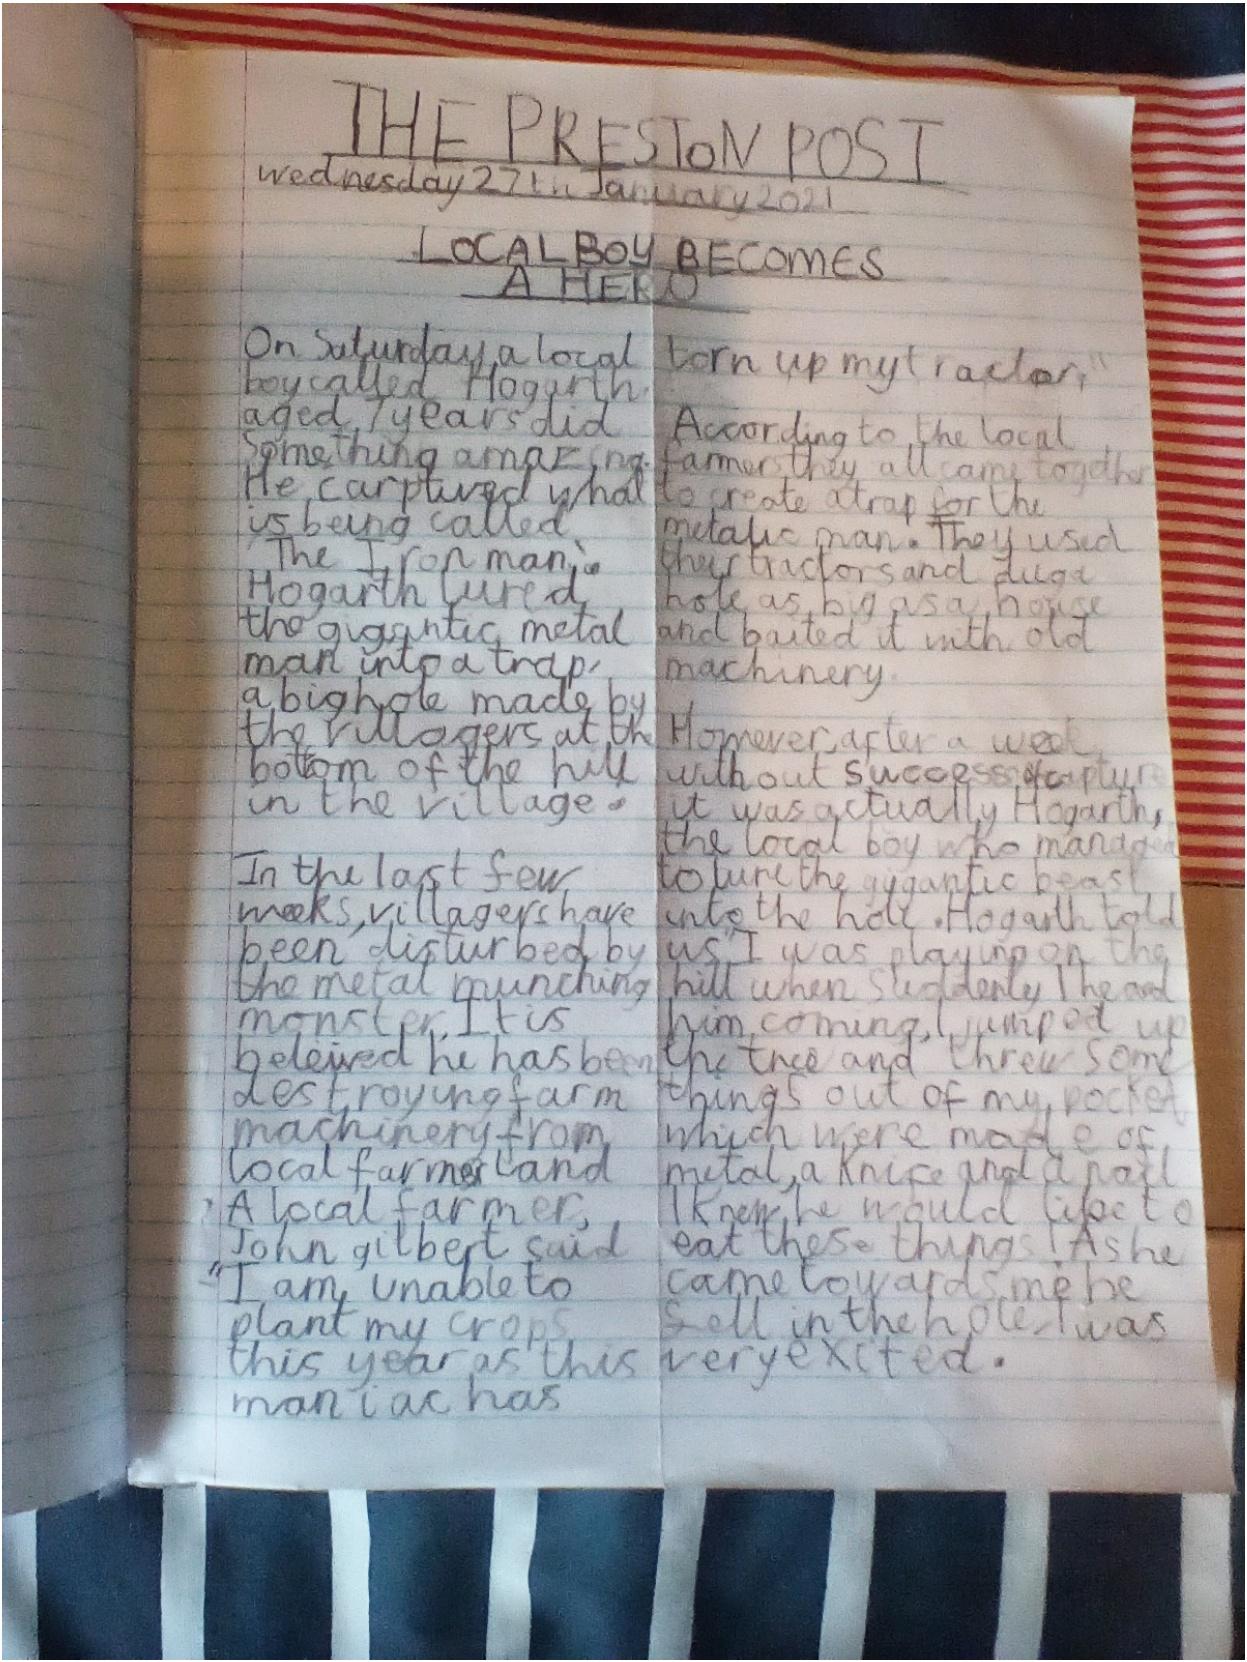 THE PRESTON POST
Wednesday 27th January 2021
LOCAL BOY BECOMES
A HERO
On Saturday a local
boy called Hogarth
aged 7 years did
something amazing.
He carptured what
is being called
'The Iron man'.
Hogarth lured
the gigantic metal
man into a trap,
a big hole made by
the villagers at the
bottom of the hill
in the village.
In the last few
weeks, villagers have
been disturbed by
the metal munching
monster. It is
beleived he has been
destroying farm
machinery from
local farmer land
A local farmer,
John gilbert said
"I am unable to
plant my crops
this year as this
maniac has
torn up my tractor,"
According to the local
farmers they all came together
to create a trap for the
metalic man. They used
their tractors and dug a
hole as big as a house
and baited it with old
machinery.
However, after a week
without success of capture
it was actually Hogarth,
the local boy who managed
to lure the gigantic beast
into the hole. Hogarth told
us "I was playing on the
hill when suddenly I heard
him coming, I jumped up
the tree and threw some
things out of my pocket
which were made of
metal, a knife and a nail
I knew he would like to
eat these things! As he
came towards me he
fell in the hole, I was
very excited.